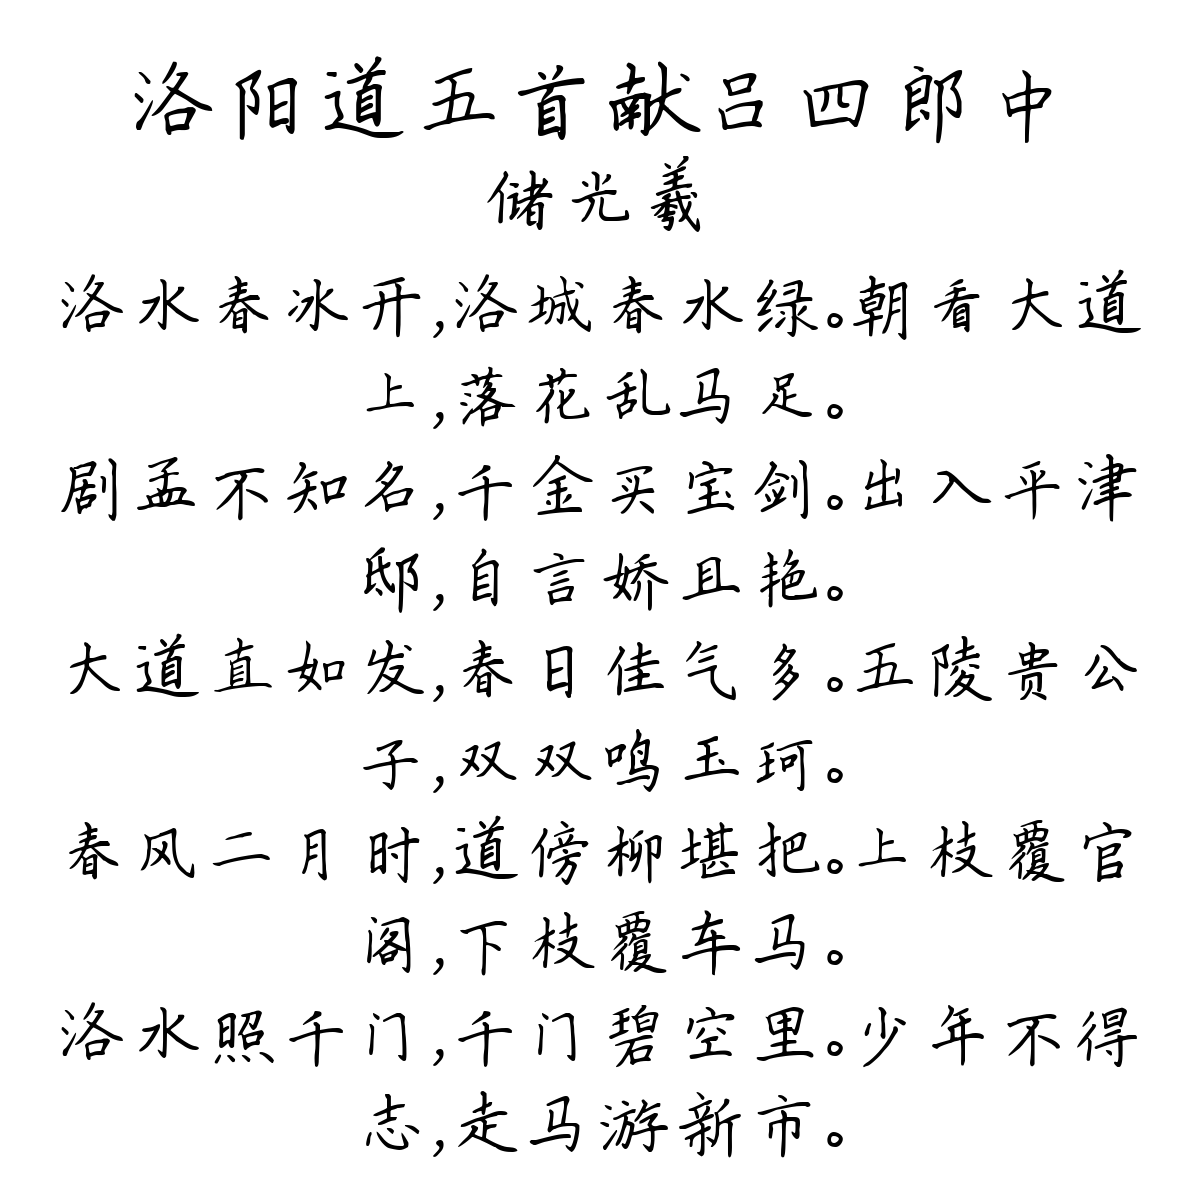 洛阳道五首献吕四郎中
储光羲
洛水春冰开,洛城春水绿。朝看大道
上,落花乱马足。
剧孟不知名,千金买宝剑。出入平津
邸,自言娇且艳。
大道直如发,春日佳气多。五陵贵公
子,双双鸣玉珂。
春风二月时,道傍柳堪把。上枝覆官
阁,下枝覆车马。
洛水照千门,千门碧空里。少年不得
志,走马游新市。